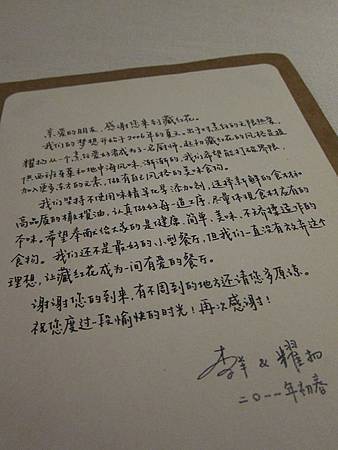 亲爱的朋友，感谢您来到藏红花。
我们的梦想开始于2006年的夏天。出于对烹饪的无限热爱，
耀扬从一个烹饪爱好者成为了一名厨师，起初藏红花的风格是提
供西班牙菜和地中海风味，渐渐的，我们希望能打破界限，
加入更多东方的元素，做有自己风格的美味食物。
我们坚持不使用味精等化学添加剂，选择新鲜的食材和
高品质的橄榄油，认真做好每一道工序，尽量体现食材应有的
本味。希望奉献给大家的是健康，简单，美味，不矫揉造作的
食物。我们还不是最好的小型餐厅，但我们一直没有放弃这个
理想，让藏红花成为一间有爱的餐厅。
谢谢您的到来，有不周到的地方还请您多原谅。
祝您度过一段愉快的时光！再次感谢！
李羊 & 耀扬
二〇一一年初春